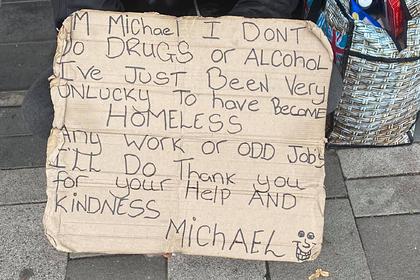 I'M Michael I DON'T
Do DRUGS or AlcoHoL
I've JUST BEEN Very
UNLUCKY To have BECOME
HOMELESS
Any Work or ODD JoBs
I'LL Do Thank you
for your Help AND
KiNDNESS
MicHAEL